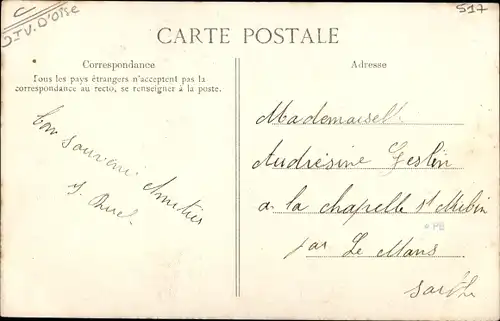 517
V. D'Oise
CARTE POSTALE
Correspondance
Tous les pays étrangers n'acceptent pas la
correspondance au recto, se renseigner à la poste.
Adresse
Bon souvenir Amitiés
Mademoiselle
Andrésine Geslin
a la chapelle st Aubin
par Le Mans
Sarthe
PB